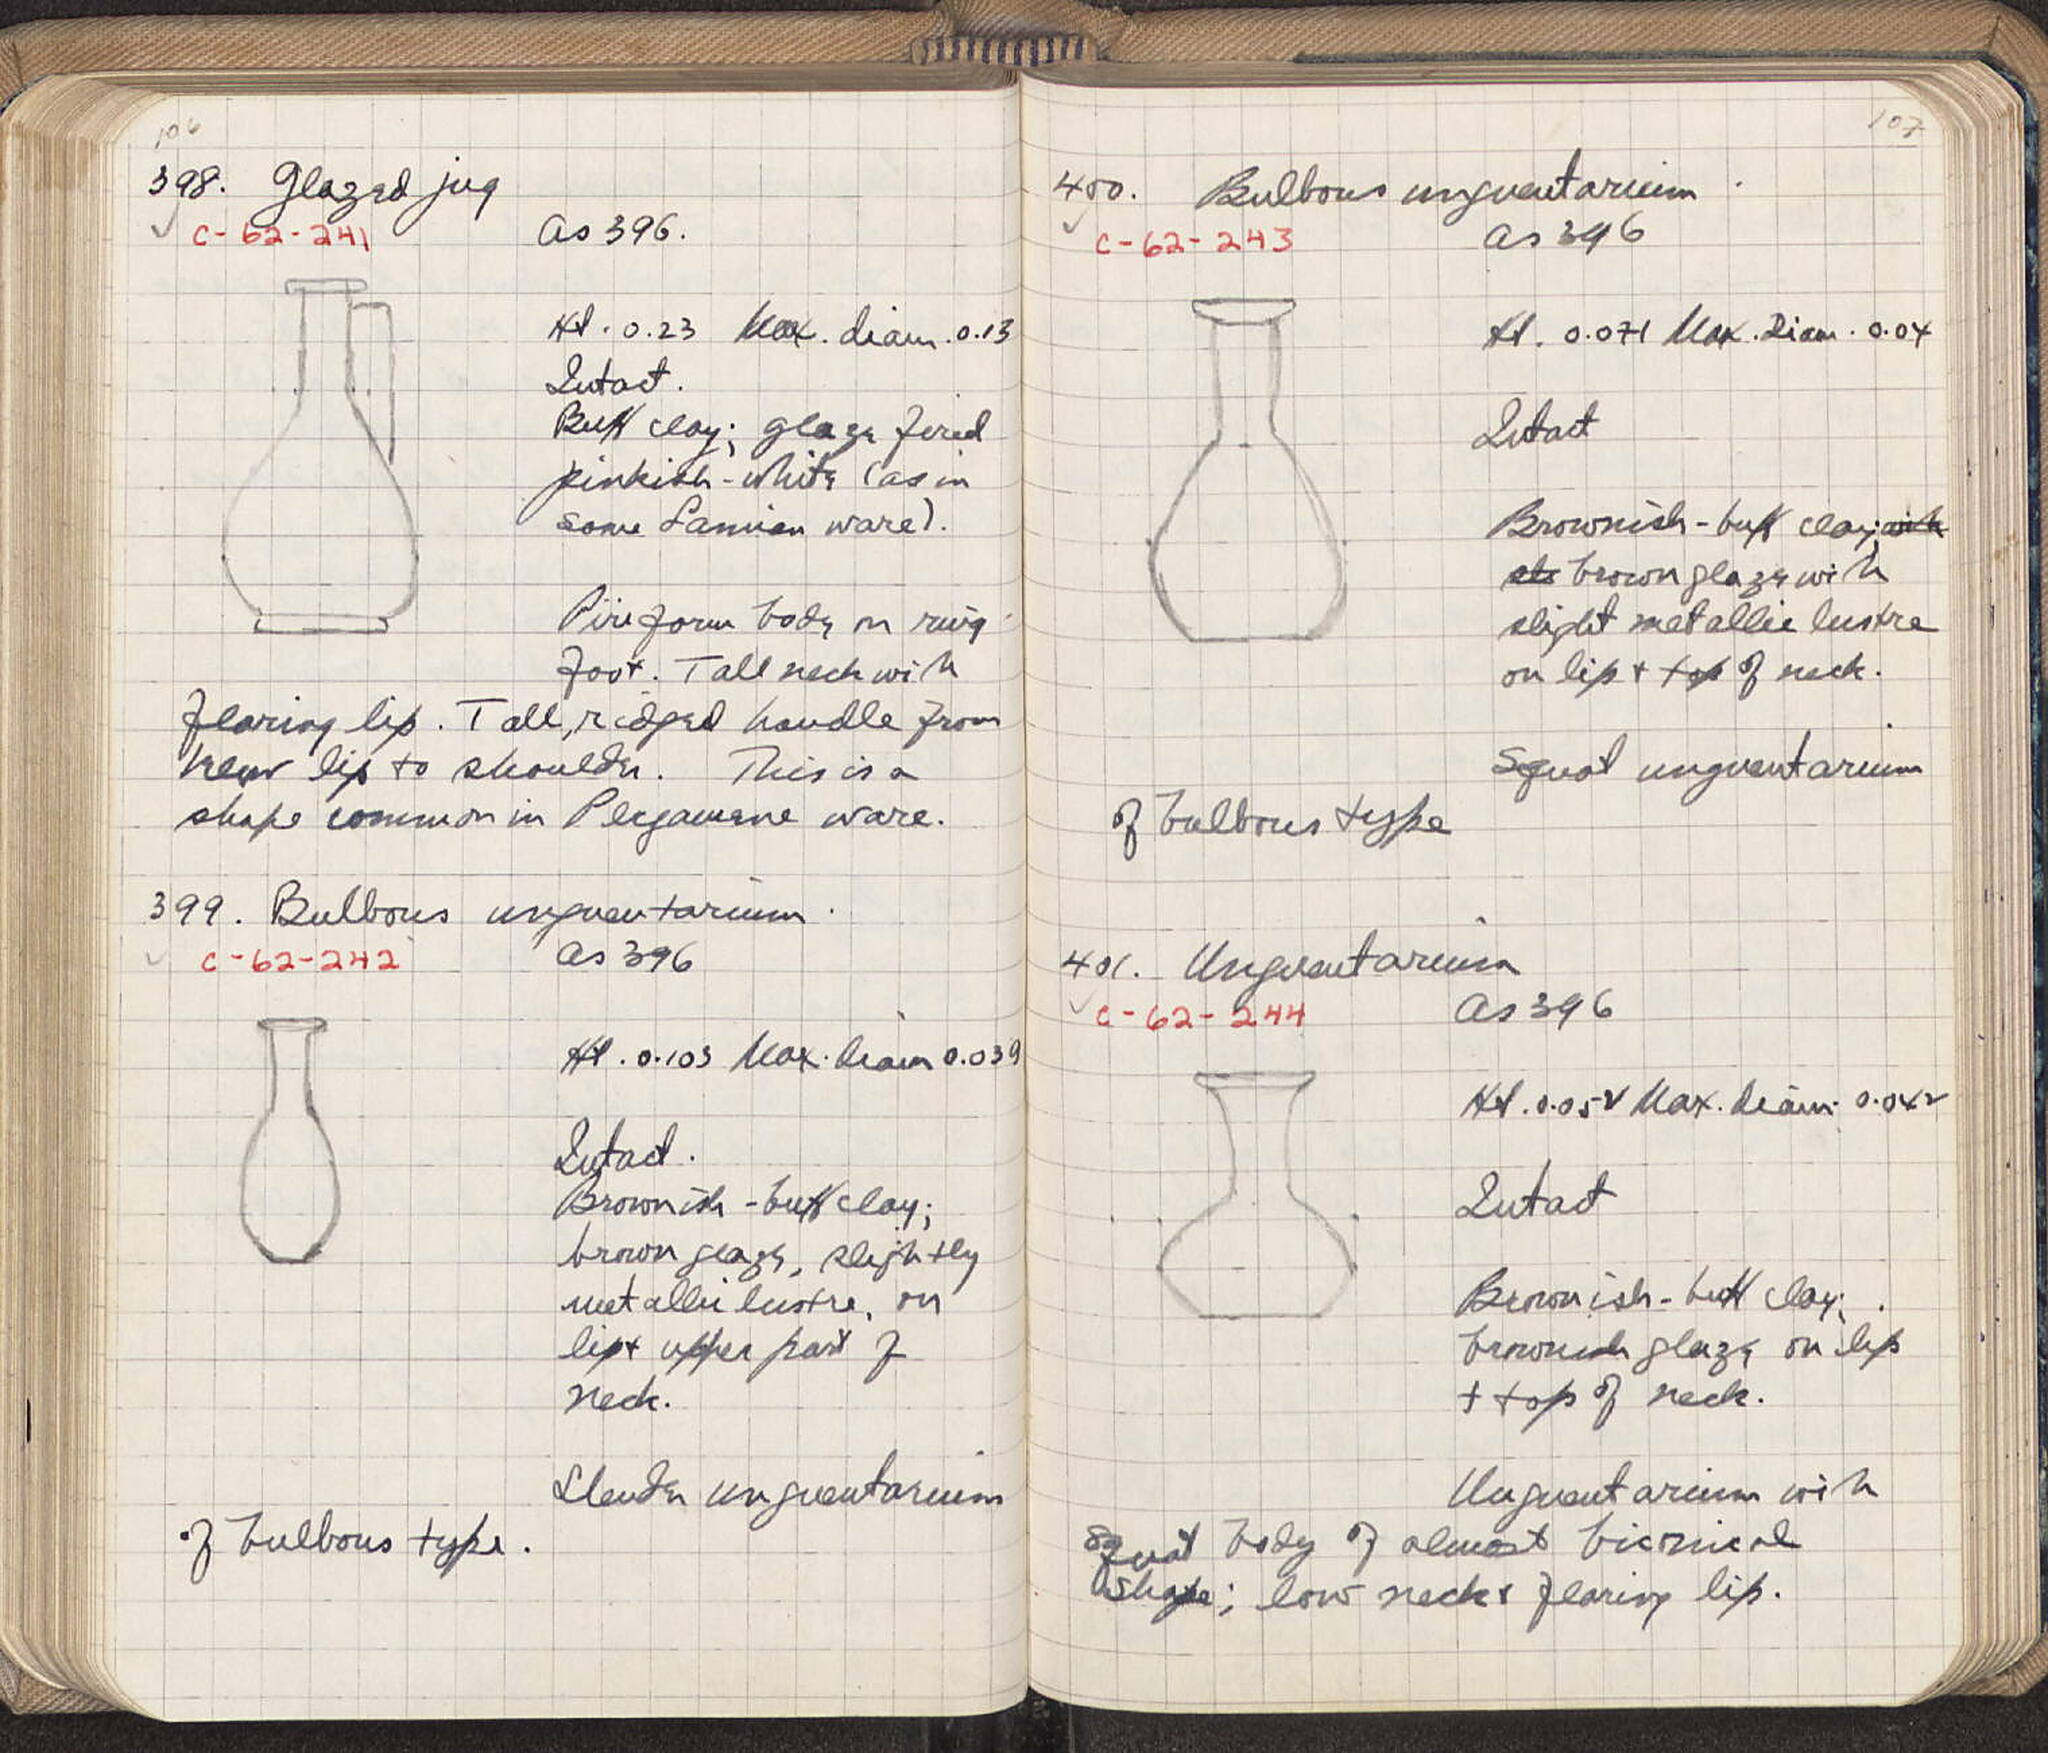 106
398. Glazed jug
C-62-241
as 396.
Ht. 0.23 Max. diam. 0.13
Intact.
Buff clay; glaze fired
pinkish-white (as in
some Samian ware).
Piriform body on ring
foot. Tall neck with
flaring lip. Tall, ridged handle from
near lip to shoulder. This is a
shape common in Pergamene ware.
399. Bulbous unguentarium.
C-62-242
as 396
Ht. 0.103 Max. Diam 0.039
Intact.
Brownish-buff clay;
brown glaze, slightly
metallic lustre, on
lip + upper part of
neck.
Slender unguentarium
of bulbous type.
107
400. Bulbous unguentarium.
C-62-243
as 396
Ht. 0.071 Max. Diam. 0.04
Intact
Brownish-buff clay; with
brown glaze with
slight metallic lustre
on lip + top of neck.
Squat unguentarium
of bulbous type
401. Unguentarium
C-62-244
as 396
Ht. 0.052 Max. Diam. 0.042
Intact
Brownish-buff clay;
brownish glaze on lip
+ top of neck.
Unguentarium with
squat body of almost biconical
shape; low neck & flaring lip.